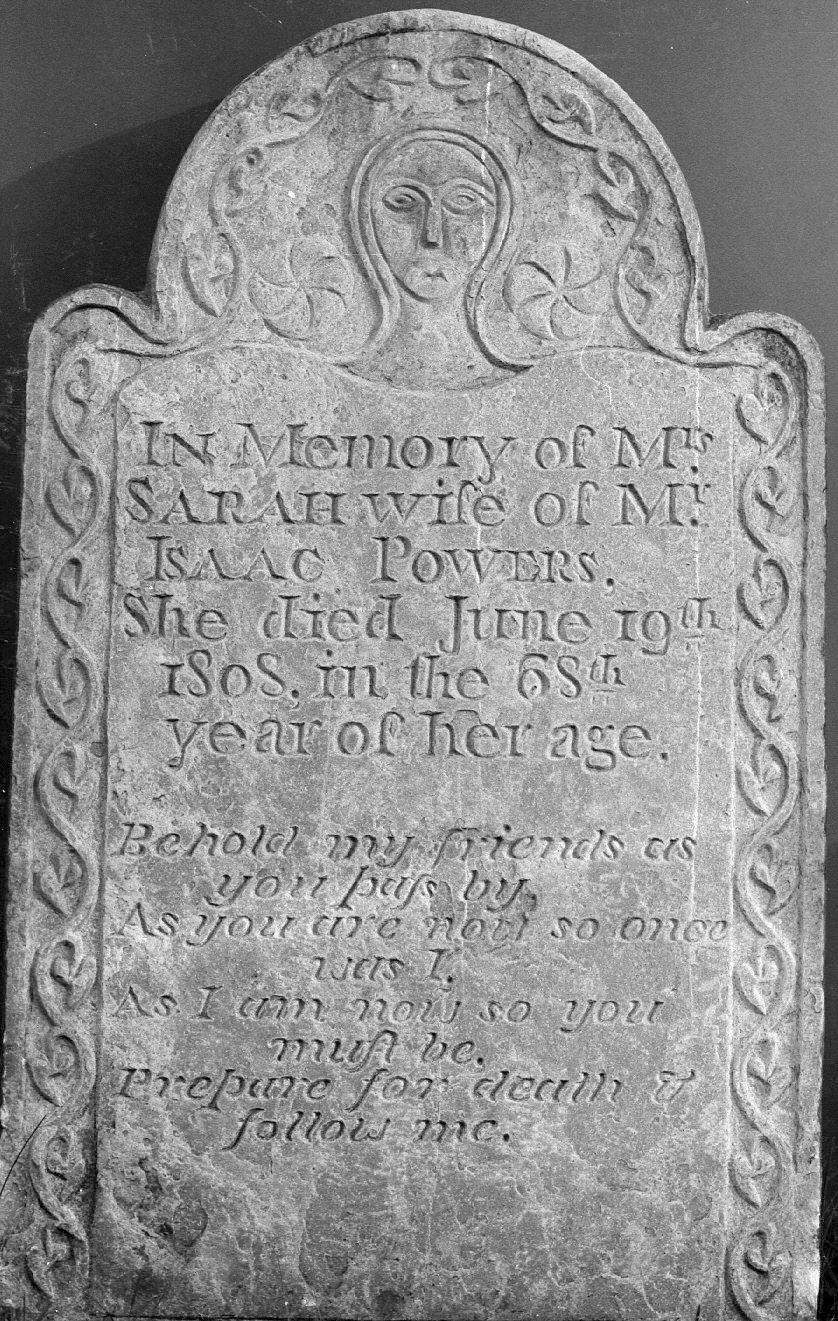 In Memory of Mrs.
Sarah wiſe of Mr.
Isaac Powers.
She died June 19th
1808. in the 68th
year of her age.
Behold my friends as
you paſs by,
As you are now so once
was I.
As I am now so you
muſt be.
Prepare for death &
follow me.